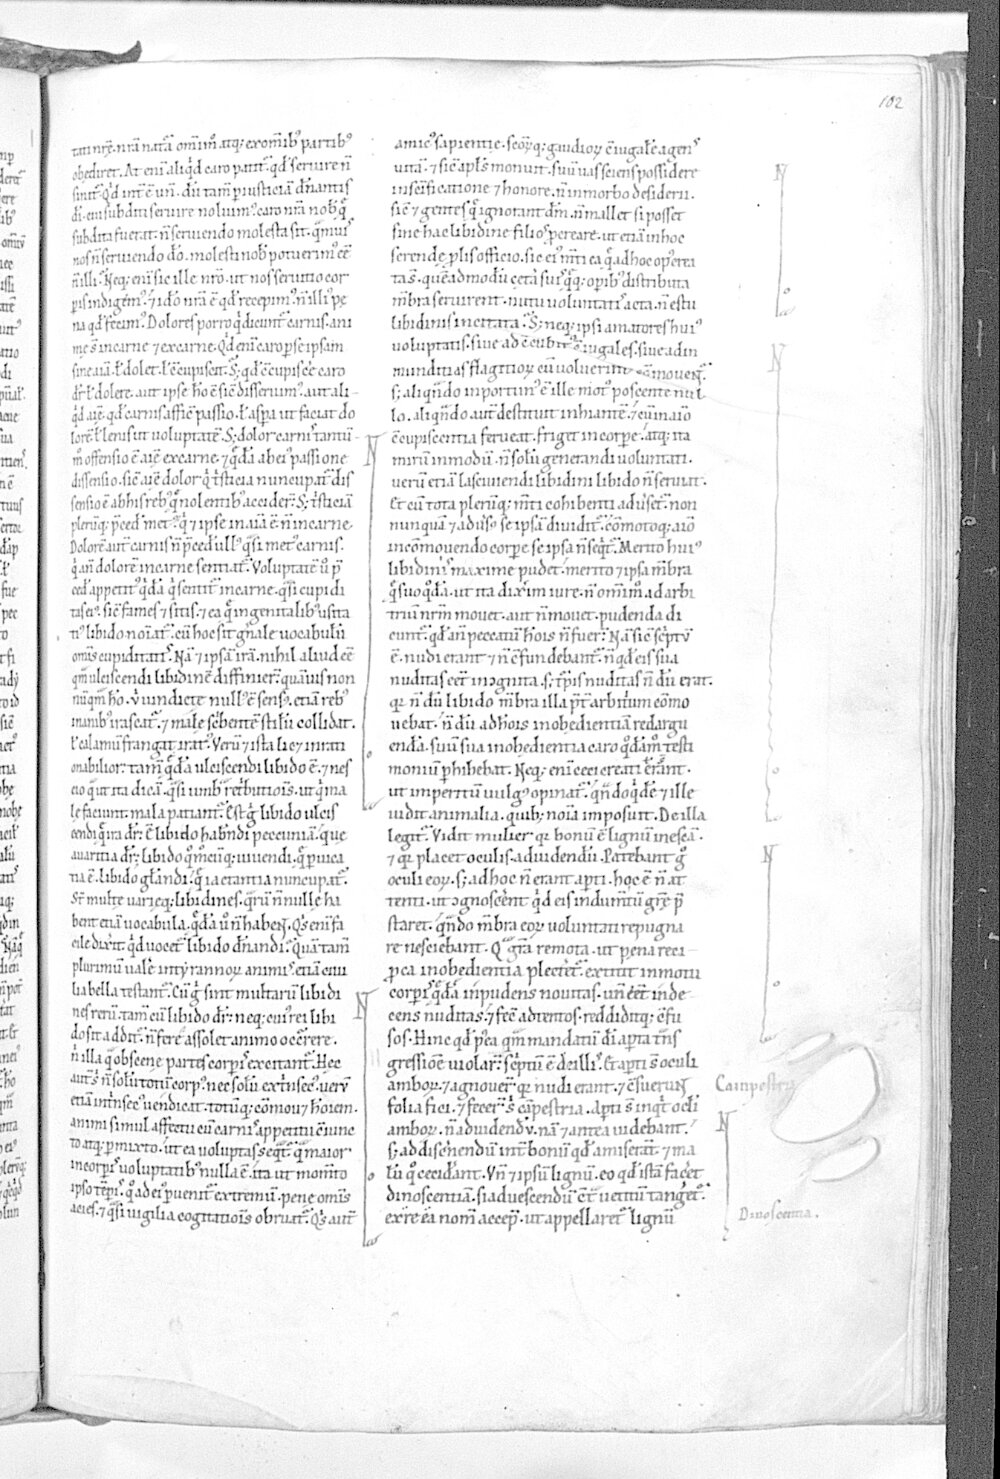 102
tati nr̄e. nrā natā om̄im̊ atq; exom̄ib; partib;
obediret. At eni aliq̇d caro patit̄ qd̄ seruire n̄
sinit. Q̇d int̄ē un̄. dū tam̄ p iusticiā dn̄antis
dī. cui subditi seruire noluim;. caro nr̄a nob q̄
subdita fuerat. n̄ seruiendo molesta sit. q̄muis
nos n̄ seruiendo dō. molesti nob potuerim; ēē
n̄ illi. Neq; eni sic ille nr̄o. ut nos seruitio cor
pis indigem;. & idō nr̄a ē qd̄ recepim;. n̄ illi; pe
na qd̄ fecim;. Dolores porro q̄ dicunt carnis. ani
me s̄ in carne & ex carne. Q̇d eni caro p se ipsam
sine aiā. ł dolet. ł c̄cupiscit. S; qd̄ c̄cupiscē caro
dr̄ ł dolere. aut ipse hō ē sic disseruim;. aut ali
q̇d aīe. qd̄ carnis afficē passio. ł asp̄a ut faciat do
lorē. ł lenis ut voluptatē. S; dolor carnis tantū
m̊ offensio ē aīe ex carne. & q̄dā ab ei; passione
dissensio. sic aīe dolor q̇ tsticia nuncupat̄. dis
sensio ē ab his reb; q̄ nolentib; acciderͭ. S; tsticiā
pleriq; pcedͭ met;. q̇ & ipse in aīa ē n̄ in carne.
Dolorē aut̄ carnis n̄ pcedͭ ull; q̄si met; carnis.
q̇ an̄ dolorē in carne sentiat̄. Voluptatē ů p̄
cedͭ appetit; q̇dā q̇ sentit̄ in carne. q̄si cupidi
tas ei;. sic fames & sitis. & ea q̄ in genitalib; usita
ti; libido noiat̄. cū hoc sit gn̄ale vocabulū
om̄is cupiditatis. Nā & ipsā irā. nihil aliud ēē
qm̄ ulciscendi libidinē diffinierͭ. quāuis non
nūqm̄ hō. u̇ vindicte null; ē sens;. etiā reb;
inanib; irascat̄. & male scbente stilū collidat.
ł calamū frangat irat;. Verū & ista licͭ irrati
onabilior. tam̄ q̄dā ulciscendi libido ē. & nes
cio q̄ ut ita dicā. q̄si umb retributiois. ut q̇ ma
le faciunt. mala patiant̄. Est q̇ libido ulcis
cendi q̄ ira dr̄. ē libido habndi pecuniā. que
avaritia dr̄. libido qm̄cūq; vivendi. q̄ pvica
tia ē. libido głandi. q̄ iactantia nuncupat̄.
St̄ multe varieq; libidines. q̄rū n̄nulle ha
bent etiā vocabula. q̄dā ů n̄ habent̄. Q̇s eni fa
cile dixit. q̇d vocet̄ libido dn̄andi. quā tam̄
plurimū ualē in tyrannoꝝ animis. etiā civi
lia bella testant̄. Cū q̇ sint multarū libidi
nes rerū. tam̄ cū libido dr̄. neq; cui; rei libi
do sit addit̄. n̄ fere assolet animo occrrere.
n̄ illa q̄ obscene partes corpis excitant̄. Hec
aut̄ s n̄ solū totū corp;. nec solū ext̄nsec;. verū
etiā int̄nsec; vendicat. totūq; cōmovͭ hoiem.
animi simul affectu cū carnis appetitu c̄iuncͭ
to atq; pmixto. ut ea voluptas seqt̄. q̄ maior
in corpis voluptatib; nulla ē. ita ut mom̄to
ipso tēpis. q̇ ad ei; pvenit̄ extremū. pene om̄is
acies. & q̄si vigilia cogitatiois obruat̄. Q̇s aut̄
amic; sapientie. sc̄oꝝq; gaudioꝝ c̄iugałē agens
vitā. & sic apł's monuit. suū vas sciens possidere
in sc̄ificatione & honore. n̄ in morbo desiderii.
sic & gentes q̄ ignorant dm̄. n̄ mallet si posset
sine hac libidine filios pcreare. ut etiā in hoc
serendę plis officio. sic ei; m̄ti ea q̄ ad hoc op; crea
ta s̄. quēadmodū cet̄a suis q̄q; opib; distributa
m̄bra seruirent. nutu voluntatis acta. n̄ estu
libidinis incitata. S; neq; ipsi amatores hui;
voluptatis. sive ad c̄cubit; c̄iugales. sive ad in
munditias flagitioꝝ cū voluerint c̄moventͬ.
s; aliqn̄do inportun; ē ille mot; poscente nul
lo. aliqn̄do aut̄ destituit inhiantē. & cū in aīo
c̄cupiscentia ferveat. friget in corpe. atq; ita
mirū in modū. n̄ solū generandi voluntati.
verū etiā lascivienci libidini libido n̄ servit.
Et cū tota pleriq; m̄ti cohibenti adu'set̄. non
nunquā & adu's; se ipsā dividit̄. cōmotoq; aīo
in cōmovendo corpe se ipsa n̄ seqt̄. Merito hui;
libidinis maxime pudet. merito & ipsa m̄bra
q̄ suo q̇dā. ut ita dixim iure. n̄ om̄im̊ ad arbi
triū nr̄m movet. aut n̄ movet. pudenda di
cunt̄. qd̄ an̄ peccatū hois n̄ fuit. Nā sic sc̄ptū
ē. nudi erant & n̄ c̄fundebant̄. n̄ qd̄ eis sua
nuditas eēt incgnita. s; tpis nuditas n̄dū erat.
qr̄ n̄dū libido m̄bra illa pt̄ arbitriū cōmo
uebat. n̄dū ad hois inobedientiā redargu
endā. suū sua inobedientia caro q̇dām̊ testi
moniū phibebat. Neq; eni ceci creati erant.
ut imperitū vulgus opinat̄. qn̄doqdē & ille
vidit animalia. quib; noīa imposuit. De illa
legit̄. Vidit mulier qr̄ bonū ē lignū in escā.
& qr̄ placet oculis. ad videndū. Patebant g̊
oculi eoꝝ. s; ad hoc n̄ erant apti. hoc ē n̄ at
tenti. ut ↄgnoscerent q̇d eis indum̄tū grē p̄
staret. qn̄do m̄bra eoꝝ voluntati repugna
re nesciebant. Q̄ grā remota. ut pena reci
pca inobedientia plectet̄. extitit in motu
corpis q̄dā inpudens novitas. un̄ eēt inde
cens nuditas. & fec̄ adtentos. reddiditq; c̄fu
sos. Hinc qd̄ p'ea qm̄ mandatū dī apta tns
gressioē violarͭ. sc̄ptū ē de illis. Et apti s̄ oculi
amboꝝ. & agnover̄ qr̄ nudi erant. & c̄suerunͭ
folia fici. & fecer̄ s campestria. Apti s̄ inqͭ oclī
amboꝝ. n̄ ad videndū. nā & antea videbant.
s; ad discnendū int̄ bonū qd̄ amiserāt. & ma
lū q̇ cecidant. Vn̄ & ipsū lignū. eo qd̄ istā facet
dinoscentiā. si ad vescendū c̄t̄ vetitū tanget̄.
ex re ea nom̄ accepͭ. ut appellaret̄ lignū
Campestria
Dinoscentia.